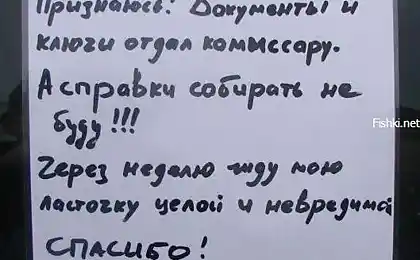 Признаюсь: Документы и
ключи отдал комиссару.
А справки собирать не
буду!!!
Fishki.net
Через неделю жду мою
ласточку целой и невредимой
СПАСИБО!